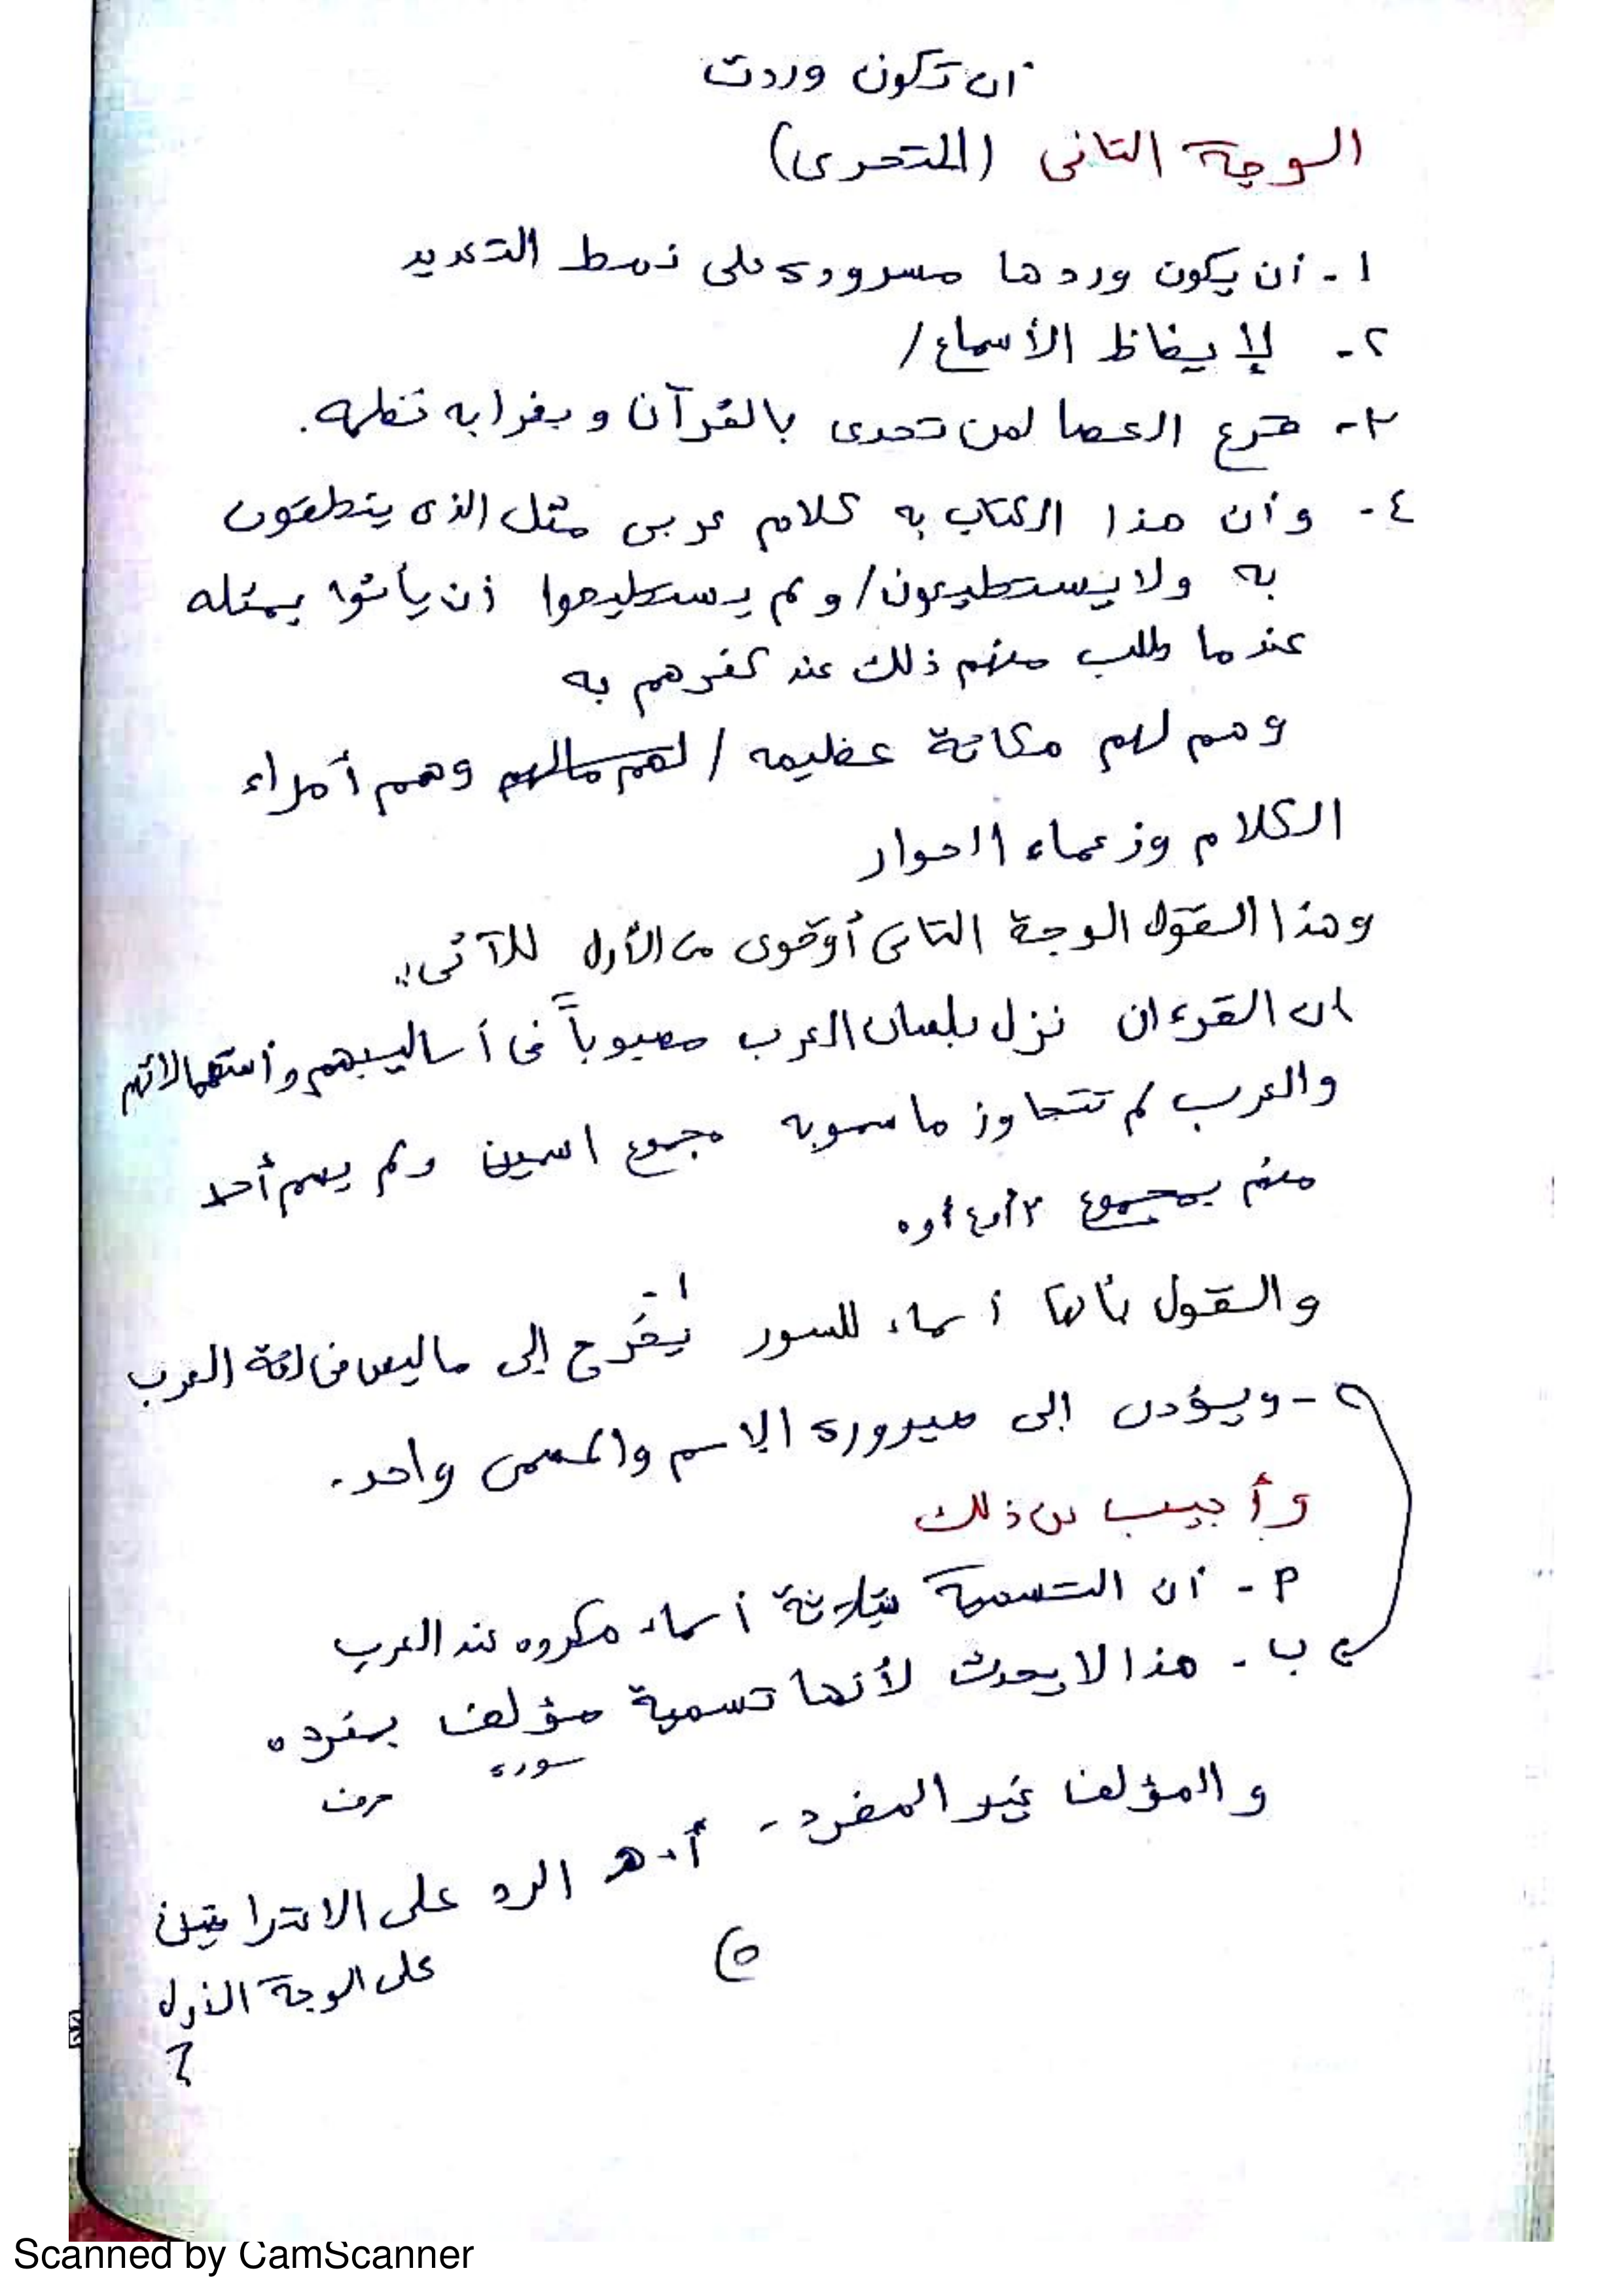 أن تكون وردت
الوجة الثانى (المتحرى)
١- أن يكون وردها مسرودة على نمط التعديد
٢- لإيقاظ الأسماع /
٣- قرع العصا لمن تحدى بالقرآن وبغرابه نظمه.
٤- وأن هذا الكتاب به كلام عربى مثل الذى ينطقون
به ولا يستطيعون / ولم يستطيعوا أن يأتوا بمثله
عندما طلب منهم ذلك عند كفرهم به
وهم لهم مكانة عظيمه / لهم مالهم وهم أمراء
الكلام وزعماء الحوار
وهذا القول الوجة الثانى أوقوى من الأول للآتى:
١ـ ان القرءان نزل بلسان العرب مصبوباً فى أساليبهم وأستعمالاتهم
والعرب لم تتجاوز ماسموبه مجموع اسمين ولم يسم أحد
منهم بمجموع ٣ أو ٤ أو ٥
١-
والقول بأنها أسماء للسور يخرج إلى ماليس فى لغة العرب
٢- ويؤدى إلى صيرورة الإسم والمسمى واحد.
وأجيب عن ذلك
م- أن التسمية بثلاثة أسماء مكروه عند العرب
ب- هذا لا يحدث لأنها تسمية مؤلف بمفرده
سورة
حرف
والمؤلف غير المفرد - أ.هـ الرد على الاعتراضين
على الوجة الأول
٥
؟
Scanned by CamScanner